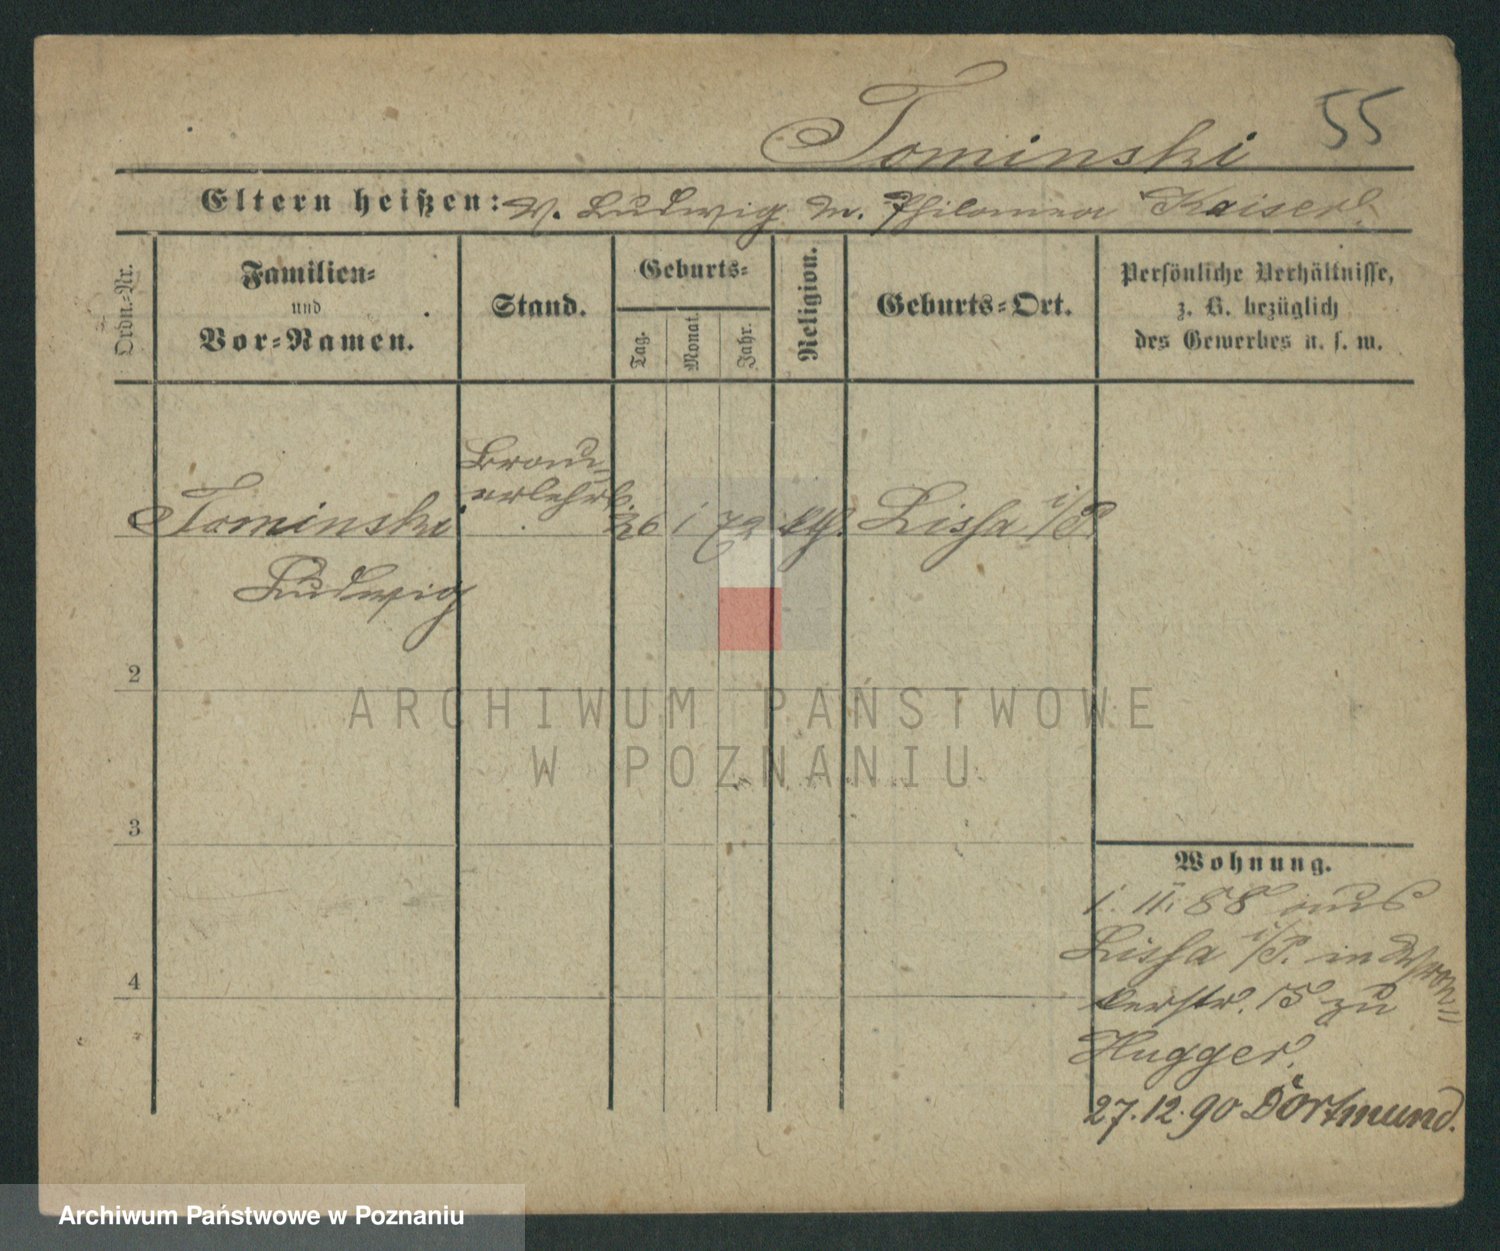 Tominski 55
Eltern heißen: V. Ludwig M. Philomena Kaiser
Ordn.-Nr.
Familien-
und
Vor-Namen.
Stand.
Geburts-
Tag.
Monat.
Jahr.
Religion.
Geburts-Ort.
Persönliche Verhältnisse,
z. B. bezüglich
des Gewerbes u. s. w.
Brau-
erlehrl.
Tominski 26 1 72 kth. Lissa i/P.
Ludwig
2
3
4
Wohnung.
1. 11. 88 aus
Lissa i/P. in Wron-
kerstr. 15 zu
Hugger.
27.12.90 Dortmund.
ARCHIWUM PAŃSTWOWE
W POZNANIU
Archiwum Państwowe w Poznaniu